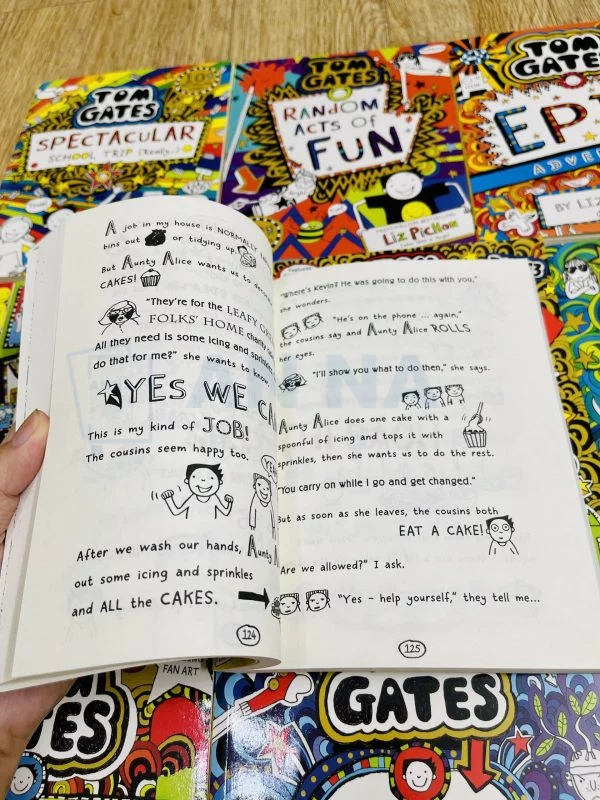 TOM GATES
SPECTACULAR
SCHOOL TRIP (Really...)
TOM GATES
RANDOM
ACTS of
FUN
LIZ PICHON
TOM
GATES
ADVE
BY LIZ
A job in my house is NORMALLY
bins out or tidying up.
But Aunty Alice wants us to
CAKES!
"They're for the LEAFY
FOLKS' HOME charity
All they need is some icing and sprinkles
do that for me?" she wants to know
YES WE CA
This is my kind of JOB!
The cousins seem happy too.
After we wash our hands, Aunty
out some icing and sprinkles
and ALL the CAKES.
124
"Where's Kevin? He was going to do this with you,"
she wonders.
"He's on the phone ... again,"
the cousins say and Aunty Alice ROLLS
her eyes.
"I'll show you what to do then," she says.
Aunty Alice does one cake with a
spoonful of icing and tops it with
sprinkles, then she wants us to do the rest.
"You carry on while I go and get changed."
But as soon as she leaves, the cousins both
EAT A CAKE!
Are we allowed?" I ask.
"Yes - help yourself," they tell me...
125
FAN ART
GATES